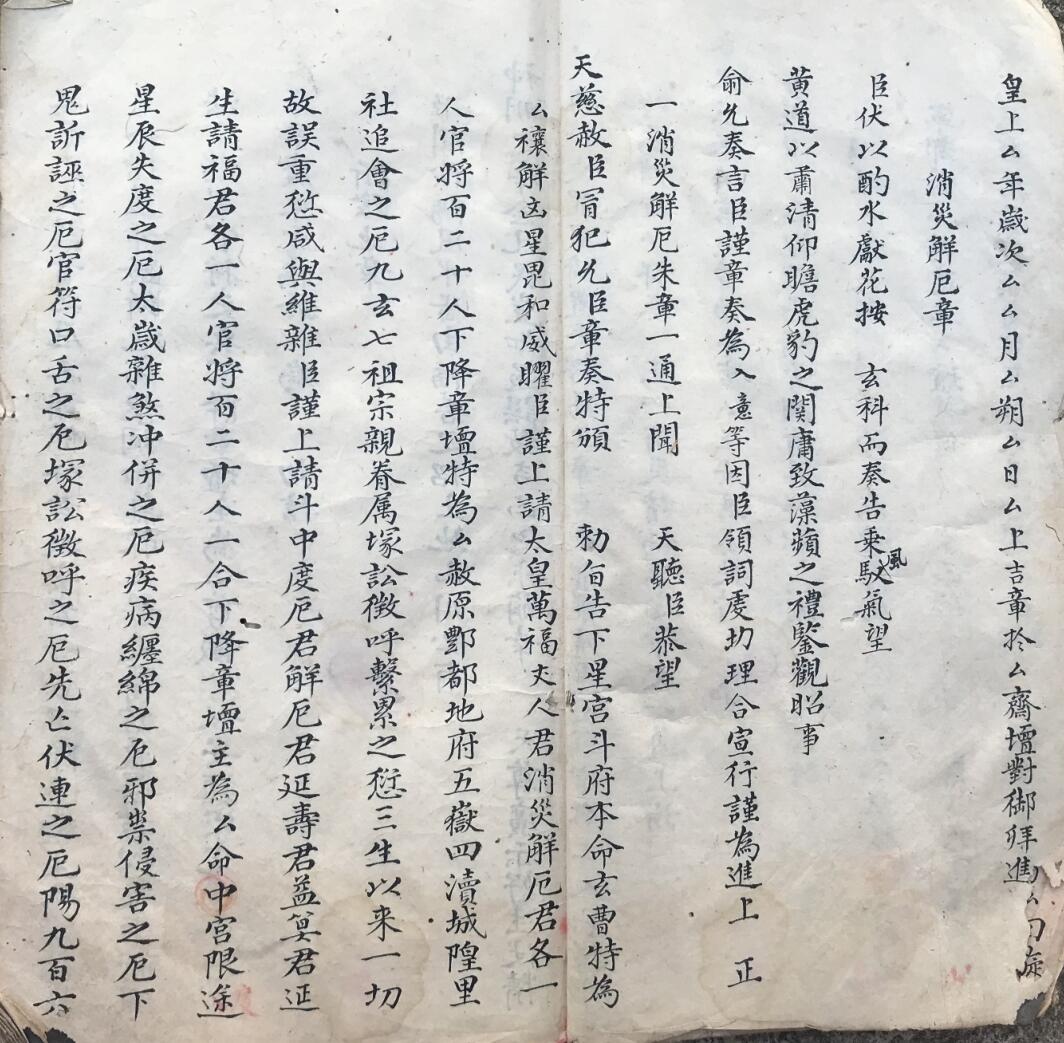 皇上厶年歲次厶厶月厶朔厶日厶上吉章於厶齋壇對御拜進厶
消災解厄章
臣伏以酌水獻花按 玄科而奏告乘風馭氣望
黃道以肅清仰瞻虎豹之関庸致藻蘋之禮鑒觀昭事
俞允奏言臣謹章奏為入意等因臣領詞虔切理合宣行謹為進上 正
一消災解厄朱章一通上聞 天聽臣恭望
天慈赦臣冐犯允臣章奏特頒 勅旨告下星宮斗府本命玄曹特為
厶禳解凶星毘和威曜臣謹上請太皇萬福丈人君消災解厄君各一
人官将百二十人下降章壇特為厶赦原酆都地府五嶽四瀆城隍里
社追會之厄九玄七祖宗親眷属塚訟徵呼繫累之愆三生以来一切
故誤重愆咸與維雜臣謹上請斗中度厄君解厄君延壽君益筭君延
生請福君各一人官将百二十人一合下降章壇主為厶命中宮限途
星辰失度之厄太歲雜煞冲併之厄疾病纏綿之厄邪祟侵害之厄下
鬼訴誣之厄官符口舌之厄塚訟徵呼之厄先亡伏連之厄陽九百六